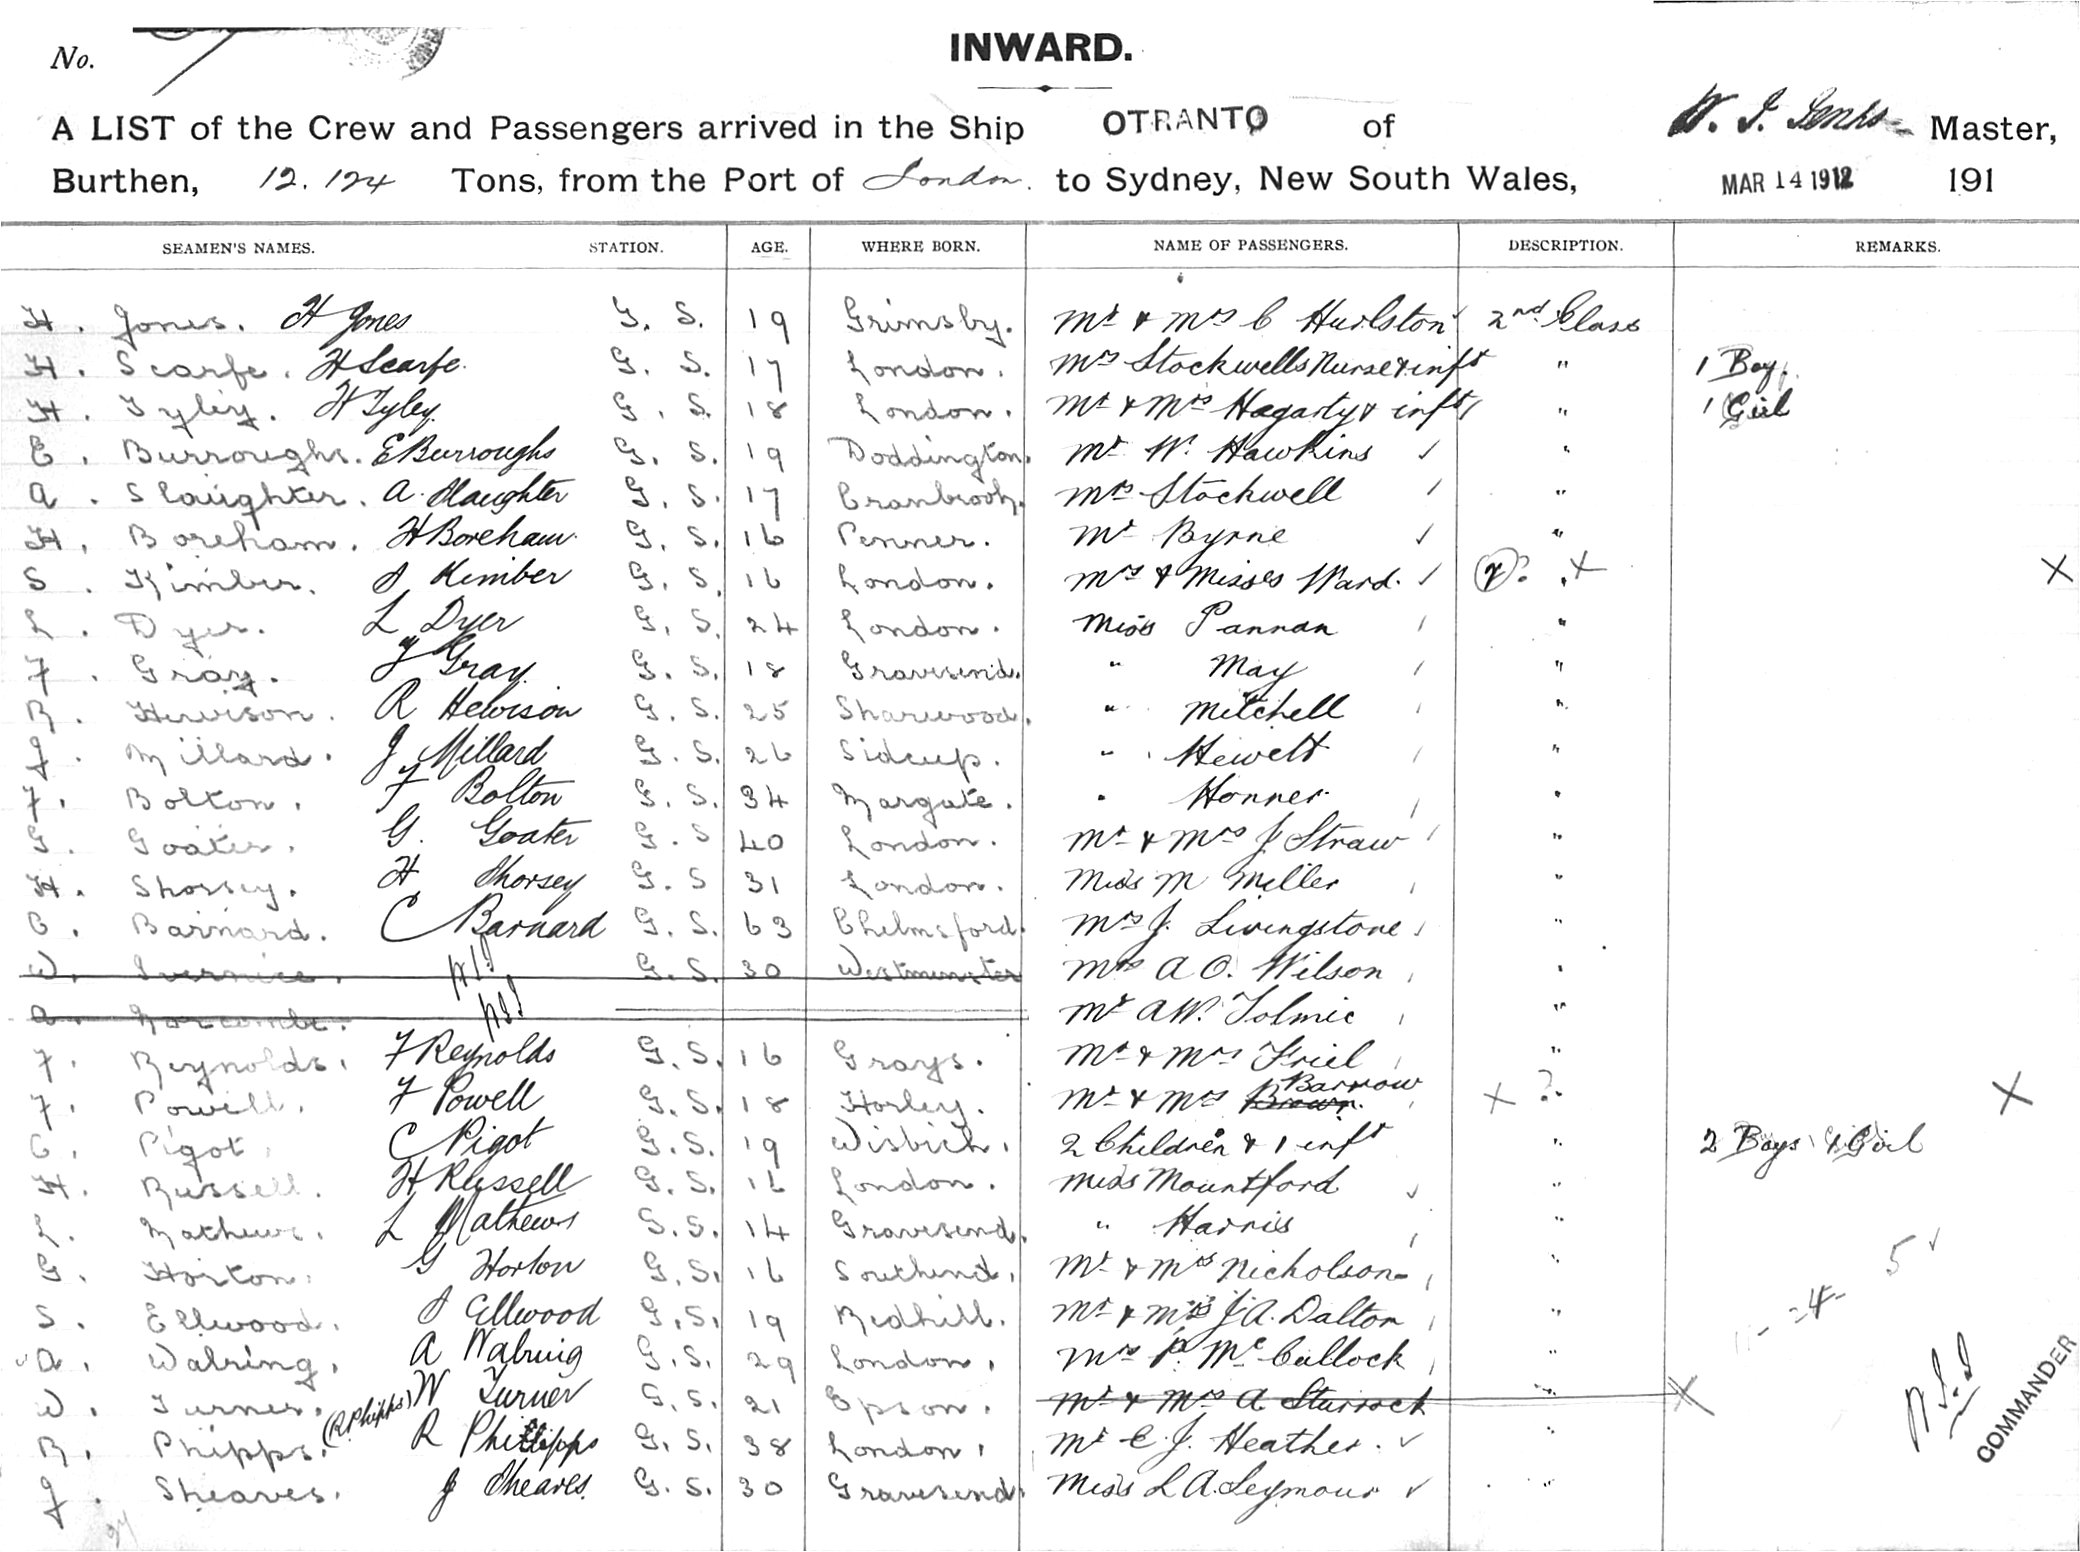 No.
INWARD.
A LIST of the Crew and Passengers arrived in the Ship OTRANTO of W. J. Master,
Burthen, 12.124 Tons, from the Port of London. to Sydney, New South Wales, MAR 14 1912 191
SEAMEN'S NAMES. STATION. AGE. WHERE BORN. NAME OF PASSENGERS. DESCRIPTION. REMARKS.
H. Jones. H Jones G. S. 19 Grimsby. Mr & Mrs C Hurlston 2nd Class
H. Scarfe. H Scarfe. G. S. 17 London. Mrs Stockwells Nurse & inft " 1 Boy.
H. Tyley. H Tyley. G. S. 18 London. Mr & Mrs Hagarty & inft " 1 Girl
E. Burroughs. E Burroughs G. S. 19 Doddington. Mr W. Hawkins "
A. Slaughter. A. Slaughter G. S. 17 Cranbrook. Mrs Stockwell "
H. Boreham. H Boreham. G. S. 16 Penner. Mr Byrne "
S. Kimber. S Kimber G. S. 16 London. Mrs & Misses Ward. (2)? " X X
L. Dyer. L Dyer G. S. 24 London. Miss Pannan "
F. Gray. F Gray. G. S. 18 Gravesend. " May "
R. Hewison. R Hewison G. S. 25 Sharwood. " Mitchell "
J. Millard. J Millard G. S. 26 Sidcup. " Hewett "
F. Bolton. F Bolton G. S. 34 Margate. " Honner "
G. Goater. G. Goater G. S 40 London. Mr & Mrs J. Straw "
H. Shorsey. H Shorsey G. S 31 London. Miss M Miller "
C. Barnard. C Barnard G. S. 63 Chelmsford. Mrs J. Livingstone "
W. G. S. 30 Westminster Mrs A O. Wilson "
A. Mr A W. Tolmie "
F. Reynolds. F Reynolds G. S. 16 Grays. Mr & Mrs Friel "
F. Powell. F Powell G. S. 18 Horley. Mr & Mrs Brown. Barrow X ? " X
C. Pigot. C Pigot G. S. 19 Wisbich. 2 Children & 1 inft " 2 Boys 1 Girl
H. Russell. H Russell G. S. 16 London. Miss Mountford "
L. Mathews. L Mathews G. S. 14 Gravesend. " Harris "
G. Horton. G Horton G. S. 16 Southend. Mr & Mrs Nicholson "
5
S. Ellwood. S Ellwood G. S. 19 Redhill. Mr & Mrs J. A. Dalton "
-4-
A. Walring. A Walring G. S. 29 London. Mrs P. McCullock "
W. Turner. W Turner G. S. 21 Epson. Mr & Mrs A Sturrock " X
R. Phipps. (R Phipps) R Phillipps G. S. 38 London. Mr C. J. Heather. "
J. Sheaves. J Sheaves. G. S. 30 Gravesend. Miss L A. Seymour "
COMMANDER